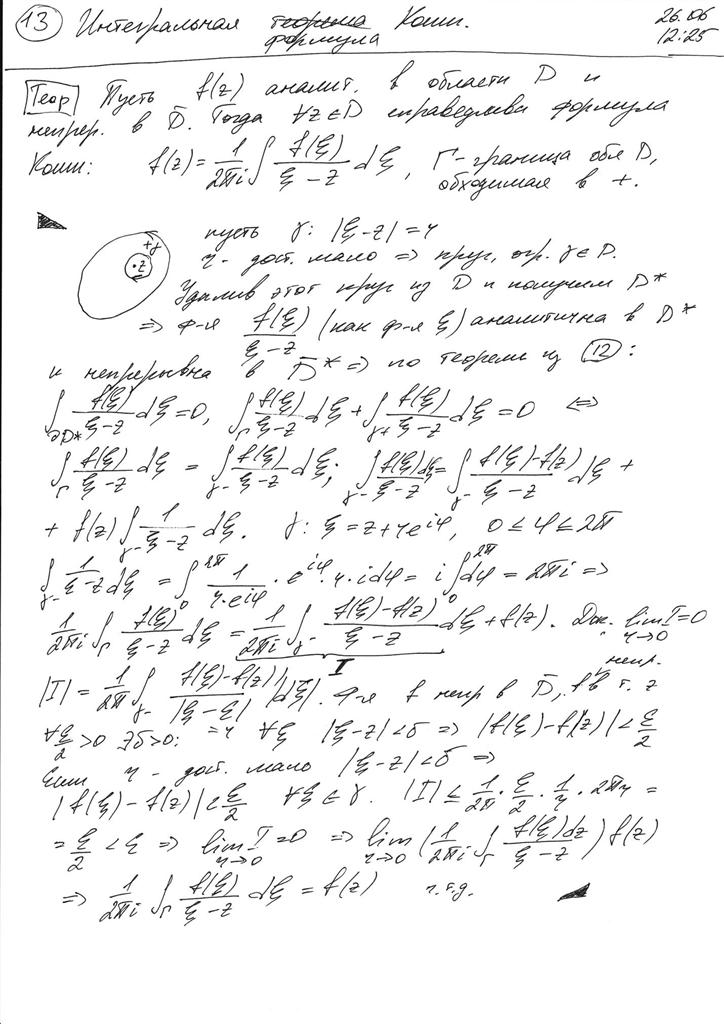 13 Интегральная теорема Коши. 26.06
формула 12:25
Теор Пусть f(z) аналит. в области D и
непрер. в D̄. Тогда ∀z∈D справедлива формула
Коши: f(z) = 1/2πi ∫ f(ξ)/(ξ−z) dξ, Γ-граница обл D,
обходимая в +.
пусть γ: |ξ−z|=r
+γ
•z
r - дост. мало => круг, огр. γ∈D.
Удалив этот круг из D и получим D*
=> ф-я f(ξ)/(ξ−z) (как ф-я ξ) аналитична в D*
и непрерывна в D̄* => по теореме из 12:
∫∂D* f(ξ)/(ξ−z) dξ=0, ∫Γ f(ξ)/(ξ−z) dξ + ∫γ+ f(ξ)/(ξ−z) dξ = 0 <=>
∫Γ f(ξ)/(ξ−z) dξ = ∫γ- f(ξ)/(ξ−z) dξ; ∫γ- f(ξ)dξ/(ξ−z) = ∫γ- (f(ξ)−f(z))/(ξ−z) dξ +
+ f(z) ∫γ- 1/(ξ−z) dξ. γ: ξ=z+re^iφ, 0≤φ≤2π
∫γ- 1/(ξ−z) dξ = ∫0^2π 1/(r·e^iφ) · e^iφ · r · idφ = i ∫0^2π dφ = 2πi =>
1/2πi ∫Γ f(ξ)/(ξ−z) dξ = 1/2πi ∫γ- (f(ξ)−f(z))/(ξ−z) dξ + f(z). Док. lim r→0 I=0
I
непр.
|I| = 1/2π ∫γ- |f(ξ)−f(z)|/|ξ−ξ| |dξ|. Ф-я f непр в D̄, в т. z
∀ε/2 >0 ∃δ>0: =r ∀ξ |ξ−z|<δ => |f(ξ)−f(z)|<ε/2
Если r - дост. мало |ξ−z|<δ =>
|f(ξ)−f(z)|<ε/2 ∀ξ∈γ. |I| ≤ 1/2π · ε/2 · 1/r · 2πr =
= ε/2 < ε => lim r→0 I=0 => lim r→0 (1/2πi ∫Γ f(ξ)dz/(ξ−z)) f(z)
=> 1/2πi ∫Γ f(ξ)/(ξ−z) dξ = f(z) ч.т.д.